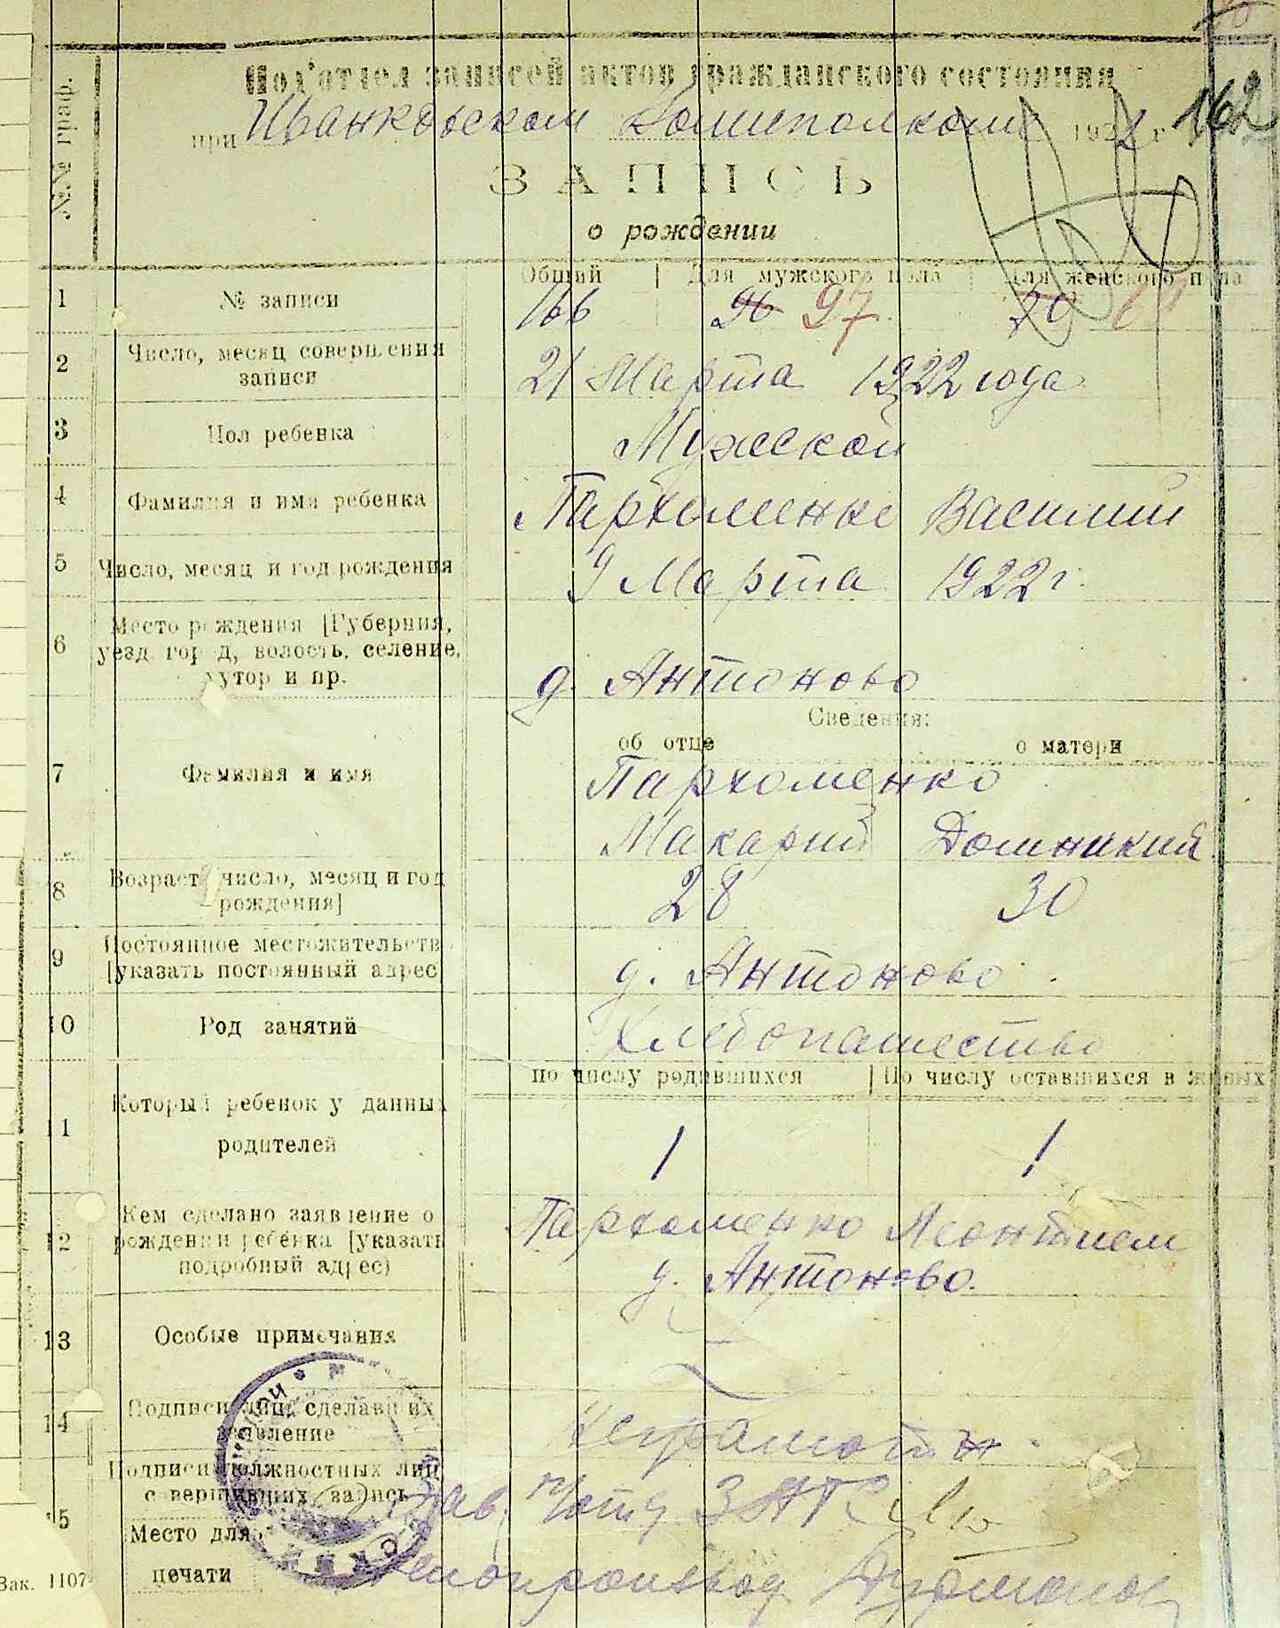 162
№№ граф.
Под'отдел записей актов гражданского состояния
при Иванковском Волисполкоме 1922 г.
ЗАПИСЬ
о рождении
Общий | Для мужского пола | Для женского пола
1 № записи 166 96 97 70
2 Число, месяц совершения записи 21 Марта 1922 года
3 Пол ребенка Мужской
4 Фамилия и имя ребенка Пархоменко Василий
5 Число, месяц и год рождения 9 Марта 1922 г.
6 Место рождения [Губерния,
уезд, город, волость, селение,
хутор и пр. д. Антоново
Сведения:
об отце о матери
7 Фамилия и имя Пархоменко
Макарий Домникия
8 Возраст [число, месяц и год
рождения] 28 30
9 Постоянное местожительств
[указать постоянный адрес] д. Антоново
10 Род занятий Хлебопашество
по числу родившихся | По числу оставшихся в живых
11 Который ребенок у данных
родителей 1 1
12 Кем сделано заявление о
рождении ребенка [указать
подробный адрес) Пархоменко Леонтием
д. Антоново.
13 Особые примечания
14 Подписи лиц, сделавших
заявление Неграмотн
15 Подписи должностных лиц
совершивших запись Зав. п/отд ЗАГС
Место для
печати Делопроизвод
Зак. 1107